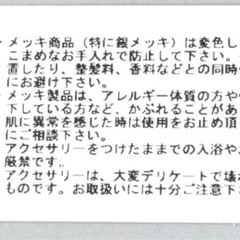 ・メッキ商品（特に銀メッキ）は変色し
こまめなお手入れで防止して下さい。
置したり、整髪料、香料などとの同時
にお避け下さい。
メッキ製品は、アレルギー体質の方や
下している方など、かぶれることがあ
肌に異常を感じた時は使用をお止め頂
にご相談下さい。
アクセサリーをつけたままでの入浴や
厳禁です。
アクセサリーは、大変デリケートで壊
ものです。お取扱いには十分ご注意下